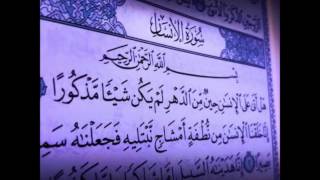 سُورَةُ الْإِنسَانِ
بِسْمِ اللَّهِ الرَّحْمَٰنِ الرَّحِيمِ
هَلْ أَتَىٰ عَلَى الْإِنسَانِ حِينٌ مِّنَ الدَّهْرِ لَمْ يَكُن شَيْئًا مَّذْكُورًا
خَلَقْنَا الْإِنسَانَ مِن نُّطْفَةٍ أَمْشَاجٍ نَّبْتَلِيهِ فَجَعَلْنَاهُ
هَدَيْنَاهُ السَّبِيلَ